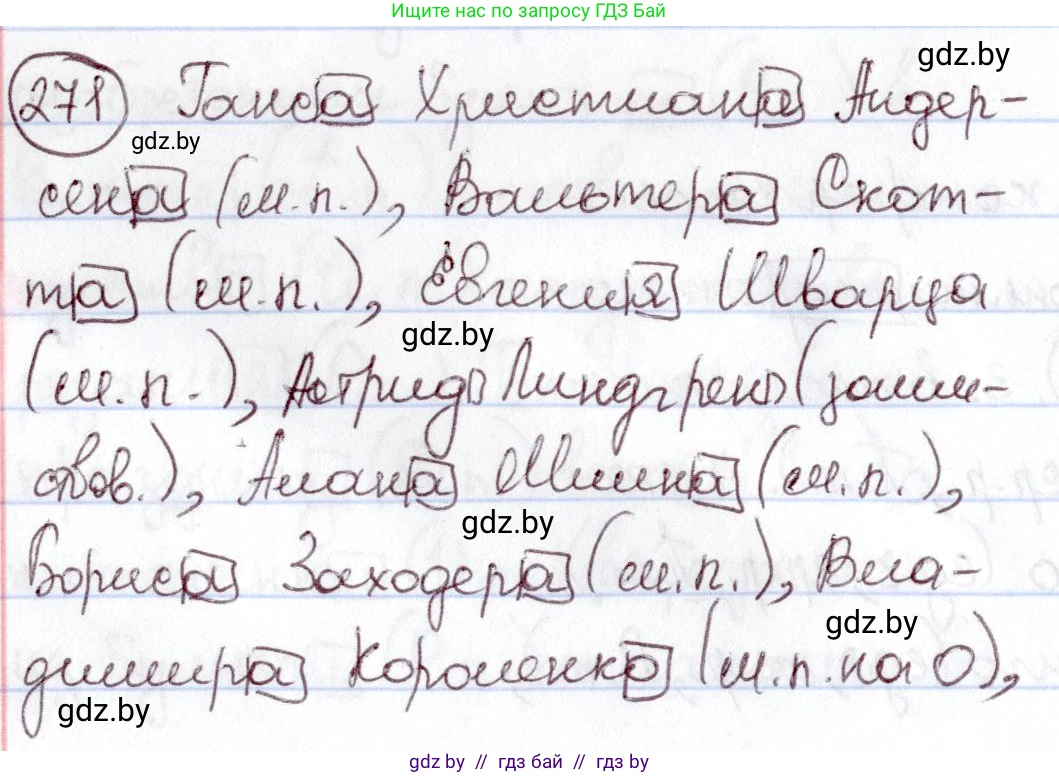 Ищите нас по запросу ГДЗ Бай
gdz.by
271 Ганса Христиана Андер-
gdz.by
сена (м.п.), Вальтера Скот-
та (м.п.), Евгения Шварца
gdz.by
(м.п.), Астрид Линдгрен (заим-
ствов.), Алана Милна (м.п.),
gdz.by
Бориса Заходера (м.п.), Вла-
gdz.by
димира Короленко (м.п. на О),
gdz.by
gdz.by // гдз бай // гдз by